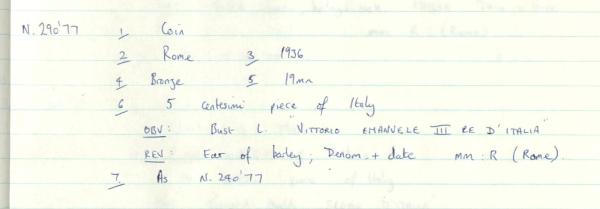 N.290'77 1 Coin
2 Rome 3 1936
4 Bronze 5 19mm
6 5 Centesimi piece of Italy
OBV: Bust L. "VITTORIO EMANVELE III RE D'ITALIA"
REV: Ear of barley; Denom. + date mm: R (Rome).
7. As N.240'77